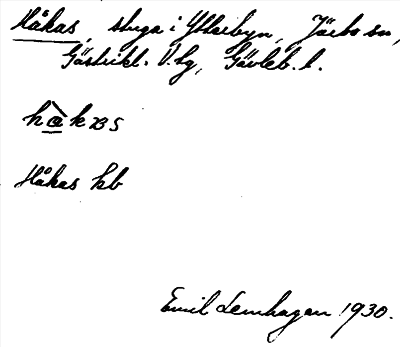 Håkas, stuga i Ytterbyn, Järbo sn,
Gästrikl. V. tg, Gävleb. l.
håkas
Håkas kb
Emil Lenhagen 1930.